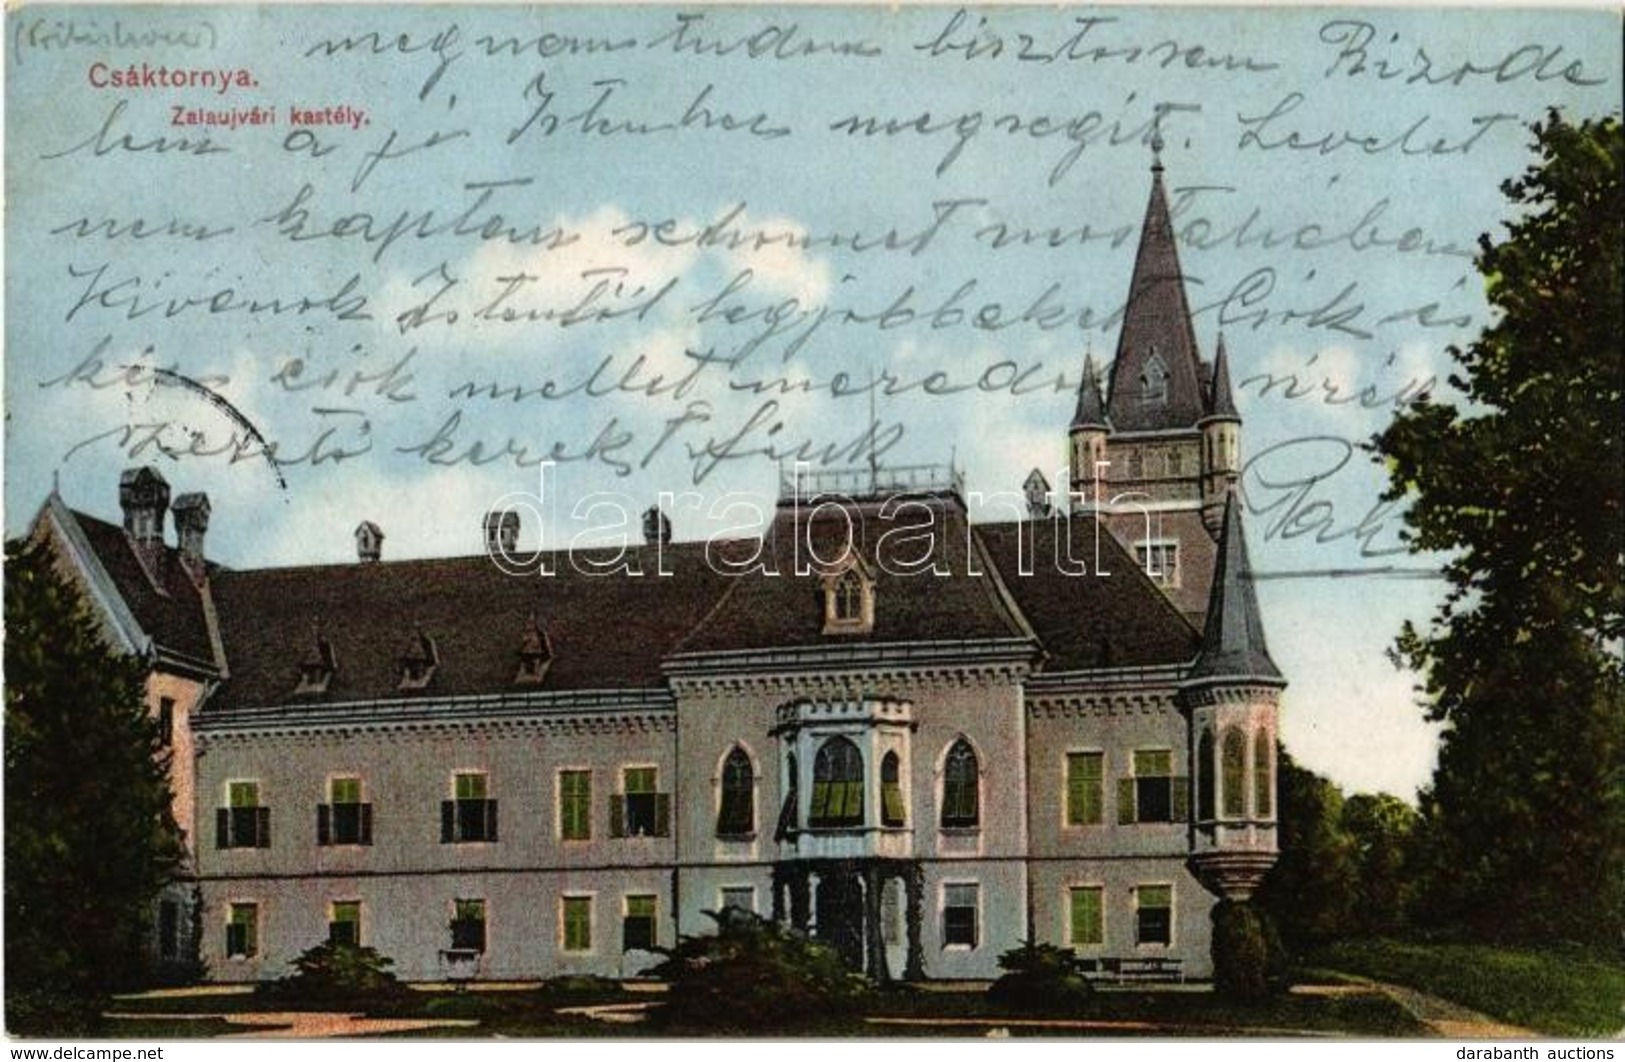 Csáktornya.
Zalaujvári kastély.
meg nem tudom bisztossan Bizoda
lem a jó Istenben megsegit. Levelet
nem kaptam sehonnet mostanában
Kivánok Istentöl legjobbakat Csók és
kéz csók mellet maradok
szeretö kerekt fiuk
darabanth
darabanth.com
© darabanth auctions